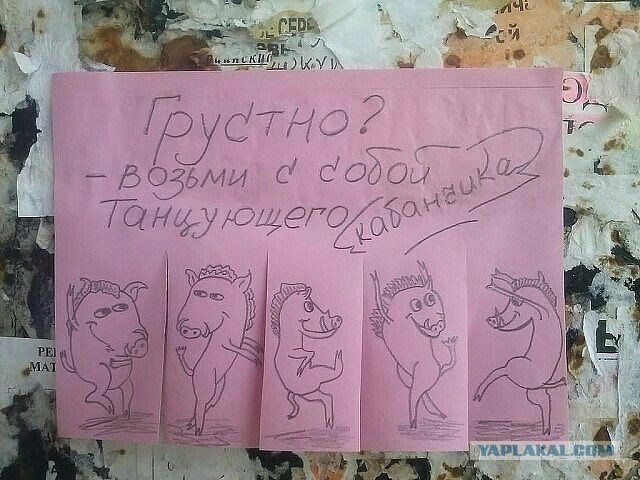 СЕРЕ
ОЙ
Грустно?
- возьми с собой
танцующего кабанчика
РЕ
МАТ
YAPLAKAL.COM